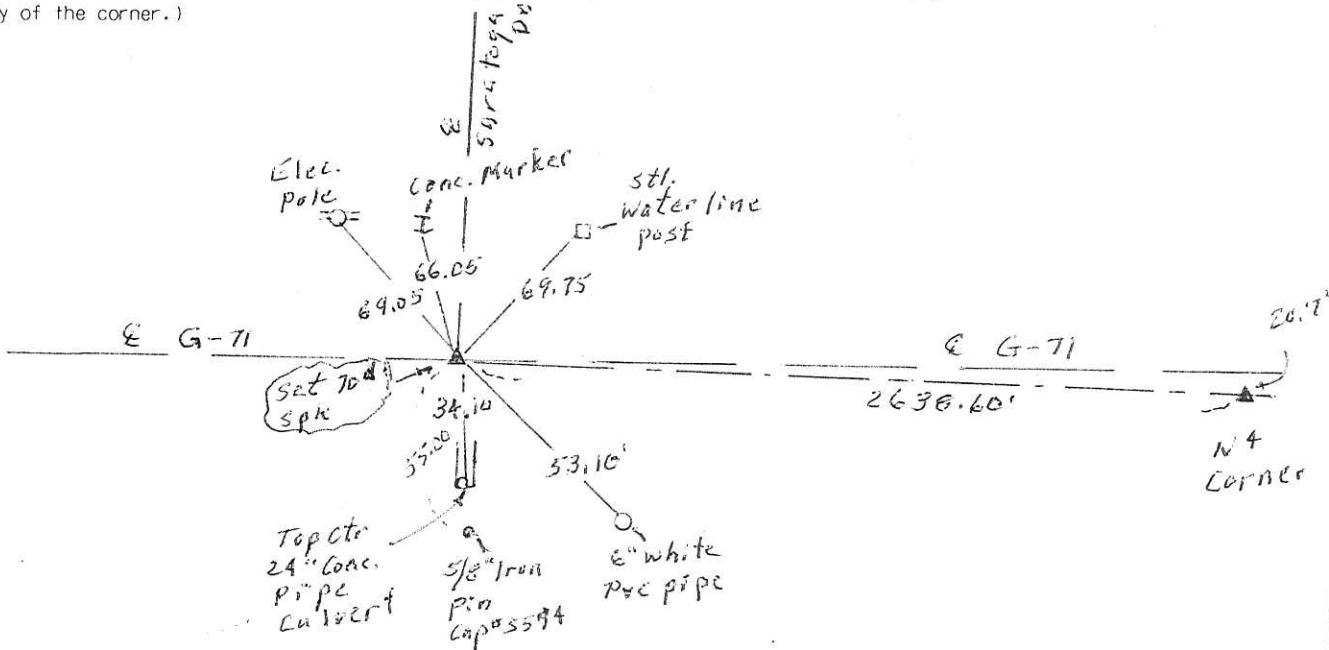 y of the corner.)
℄ Saratoga
Dr
Elec.
Pole
Conc. Marker
stl.
water line
post
66.05
69.05
69.75
℄ G-71
℄ G-71
20.7'
Set 70d
Spk
34.10
2638.60'
55.00
53.10'
N 4
Corner
Top Ctr
24" Conc.
Pipe
Culvert
5/8" Iron
Pin
Cap#5594
6" White
PVC pipe